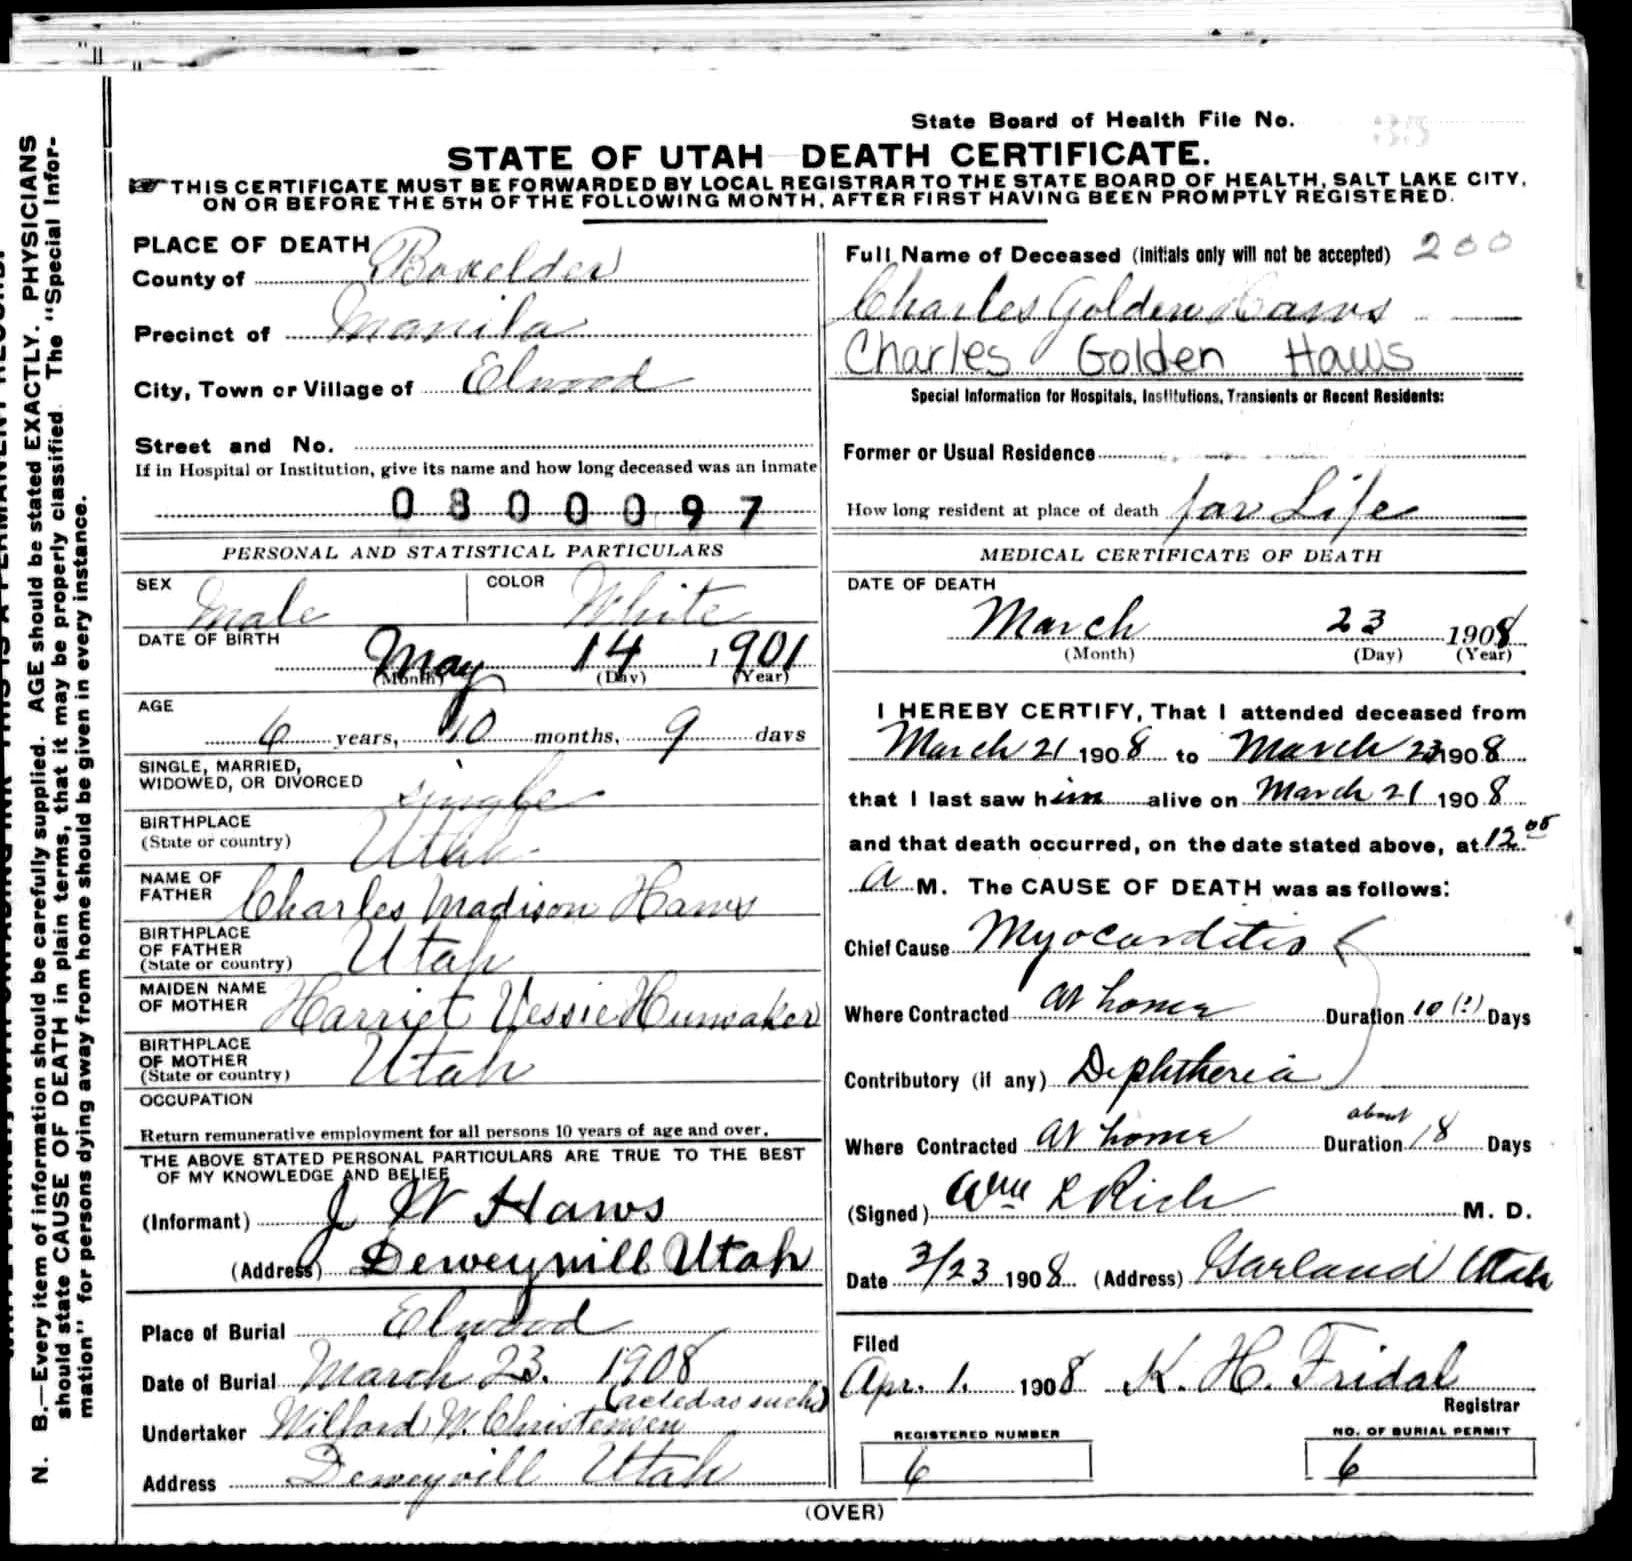 State Board of Health File No. 35
STATE OF UTAH DEATH CERTIFICATE.
THIS CERTIFICATE MUST BE FORWARDED BY LOCAL REGISTRAR TO THE STATE BOARD OF HEALTH, SALT LAKE CITY,
ON OR BEFORE THE 5TH OF THE FOLLOWING MONTH, AFTER FIRST HAVING BEEN PROMPTLY REGISTERED.
PLACE OF DEATH
County of Boxelder
Precinct of Manila
City, Town or Village of Elwood
Street and No.
If in Hospital or Institution, give its name and how long deceased was an inmate
0800097
PERSONAL AND STATISTICAL PARTICULARS
SEX Male COLOR White
DATE OF BIRTH
May 14 1901
(Month) (Day) (Year)
AGE
6 years, 10 months, 9 days
SINGLE, MARRIED,
WIDOWED, OR DIVORCED single
BIRTHPLACE
(State or country) Utah
NAME OF
FATHER Charles Madison Haws
BIRTHPLACE
OF FATHER
(State or country) Utah
MAIDEN NAME
OF MOTHER Harriet Vessie Hunsaker
BIRTHPLACE
OF MOTHER
(State or country) Utah
OCCUPATION
Return remunerative employment for all persons 10 years of age and over.
THE ABOVE STATED PERSONAL PARTICULARS ARE TRUE TO THE BEST
OF MY KNOWLEDGE AND BELIEF
(Informant) J W Haws
(Address) Deweyvill Utah
Place of Burial Elwood
Date of Burial March 23. 1908
(acted as such)
Undertaker Wilford W. Christensen
Address Deweyvill Utah
Full Name of Deceased (Initials only will not be accepted) 200
Charles Golden Haws
Charles Golden Haws
Special Information for Hospitals, Institutions, Transients or Recent Residents:
Former or Usual Residence
How long resident at place of death for Life
MEDICAL CERTIFICATE OF DEATH
DATE OF DEATH
March 23 1908
(Month) (Day) (Year)
I HEREBY CERTIFY, That I attended deceased from
March 21 1908 to March 23 1908
that I last saw him alive on March 21 1908
and that death occurred, on the date stated above, at 12 00
a M. The CAUSE OF DEATH was as follows:
Chief Cause Myocarditis
Where Contracted at home Duration 10 (?) Days
Contributory (if any) Diphtheria
about
Where Contracted at home Duration 18 Days
(Signed) Wm L Rich M. D.
Date 3/23 1908 (Address) Garland Utah
Filed
Apr. 1. 1908 K. H. Fridal
Registrar
REGISTERED NUMBER NO. OF BURIAL PERMIT
6 6
(OVER)
N. B.—Every item of information should be carefully supplied. AGE should be stated EXACTLY. PHYSICIANS
should state CAUSE OF DEATH in plain terms, that it may be properly classified. The "Special Infor-
mation" for persons dying away from home should be given in every instance.